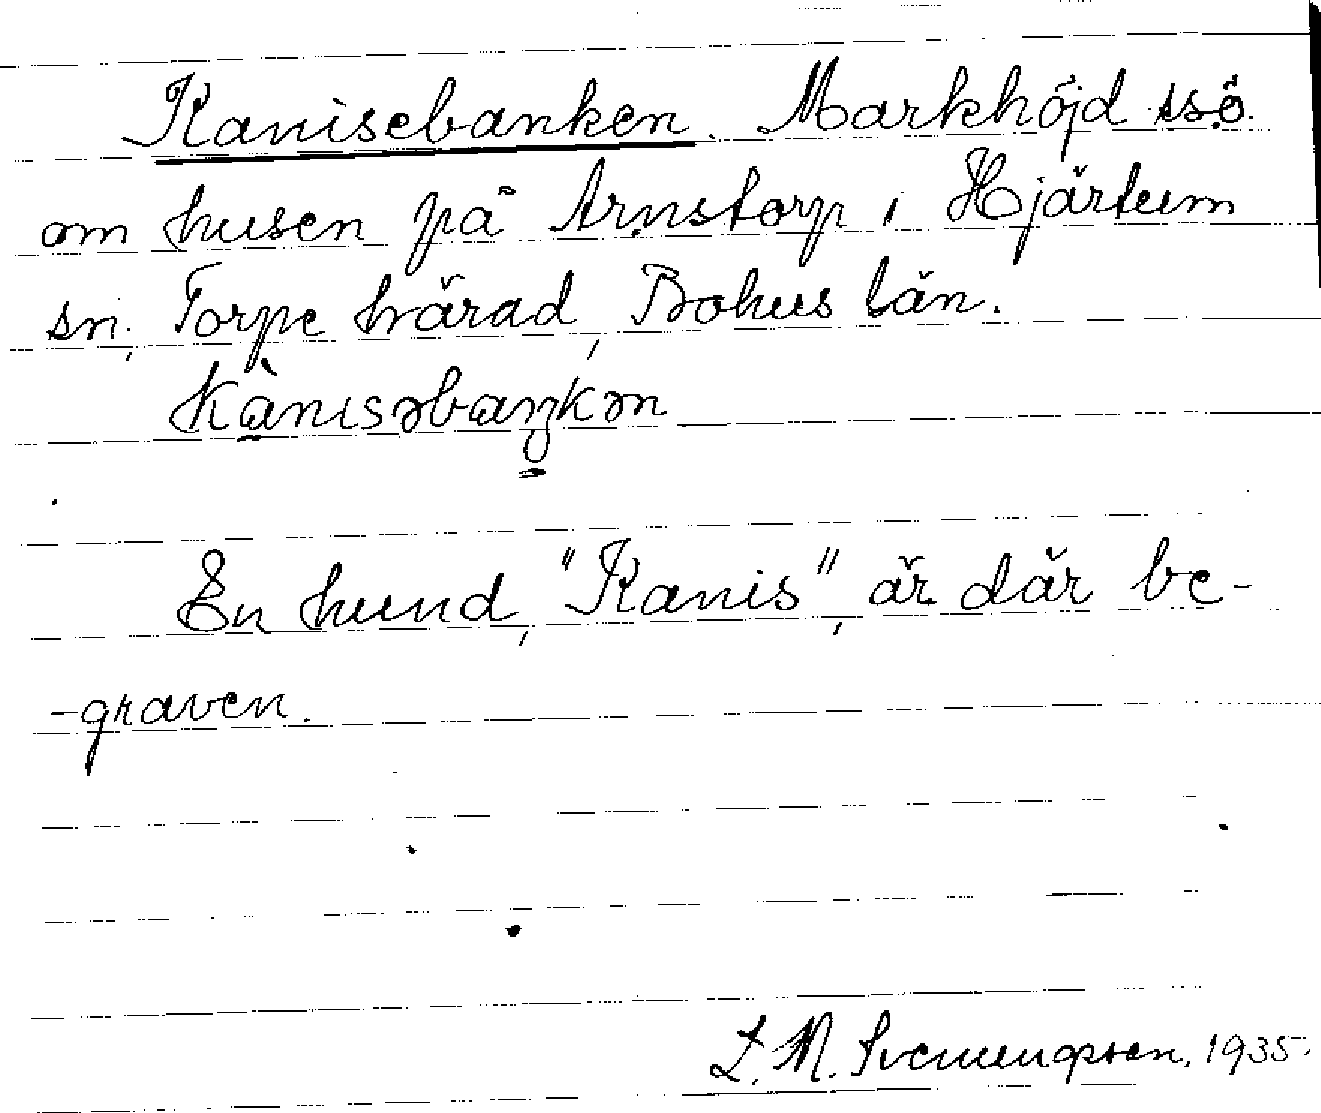 Kanisebanken. Markhöjd ssö.
om husen på Arnstorp, Hjärtum
sn, Torpe härad, Bohus län.
kànɩsəbaŋkən
En hund, "Kanis", är där be-
-graven.
L. M. Svenungsson, 1935.